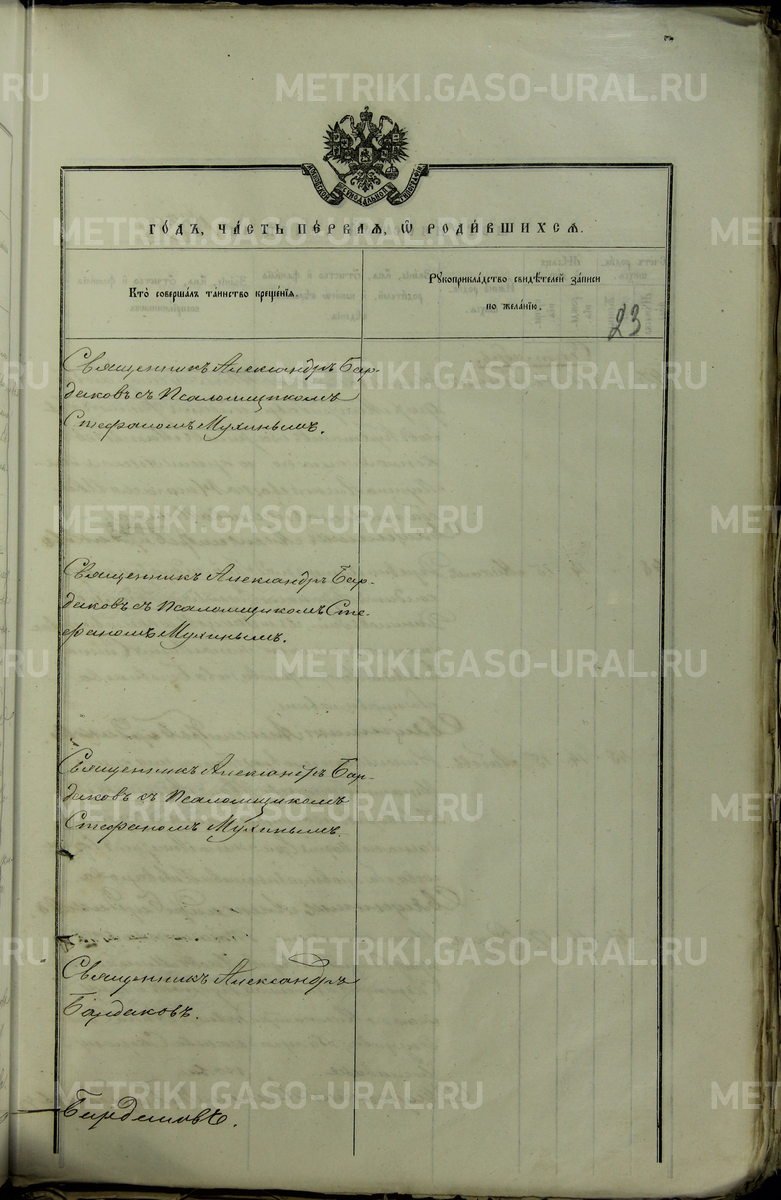 METRIKI.GASO-URAL.RU
ГО́ДЪ, ЧА́СТЬ ПЕ́РВАѦ, Ѡ҆ РОДИ́ВШИХСѦ.
Кто̀ соверша́лъ та́инство креще́нїѧ.
Рꙋкоприкла́дство свидѣ́телей за́писи
по жела́нїю.
23
Священникъ Александръ Бар-
даковъ съ Псаломщикомъ
Стефаномъ Мухинымъ.
Священникъ Александръ Бар-
даковъ съ Псаломщикомъ Сте-
фаномъ Мухинымъ.
Священникъ Александръ Бар-
даковъ съ Псаломщикомъ
Стефаномъ Мухинымъ.
Священникъ Александръ
Бардаковъ.